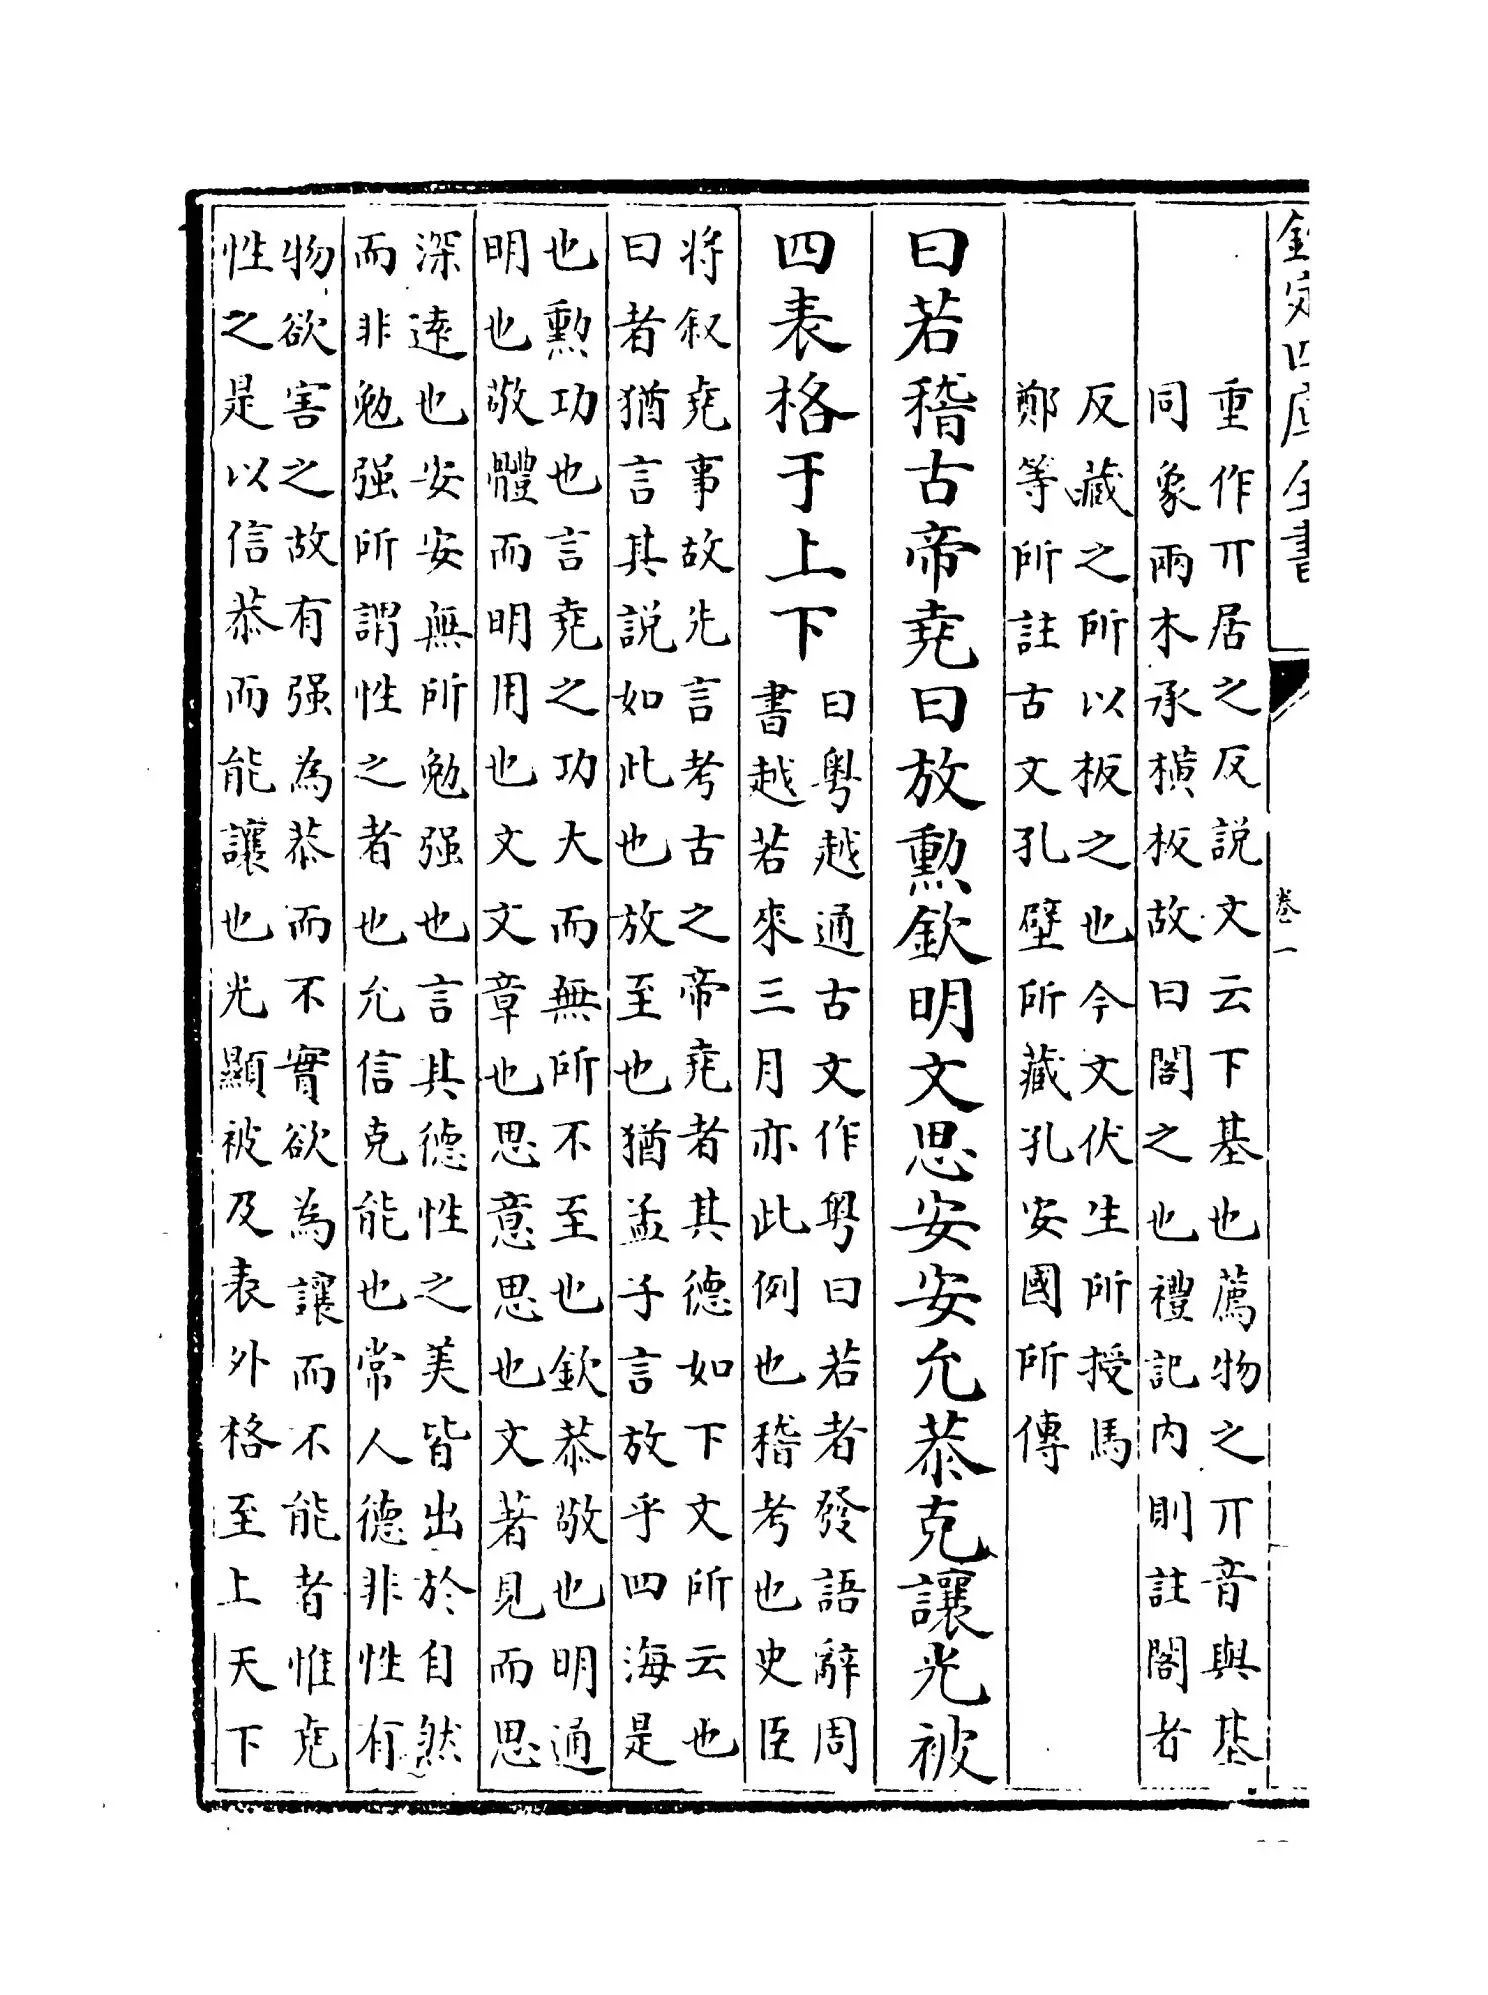 欽定四庫全書
卷一
重作丌居之反説文云下基也薦物之丌音與基
同象兩木承橫板故曰閣之也禮記内則註閣者
反藏之所以板之也今文伏生所授馬
鄭等所註古文孔壁所藏孔安國所傳
曰若稽古帝堯曰放勲欽明文思安安允恭克讓光被
四表格于上下
曰粤越通古文作粤曰若者發語辭周
書越若來三月亦此例也稽考也史臣
將叙堯事故先言考古之帝堯者其德如下文所云也
曰者猶言其説如此也放至也猶孟子言放乎四海是
也勲功也言堯之功大而無所不至也欽恭敬也明通
明也敬體而明用也文文章也思意思也文著見而思
深逺也安安無所勉强也言其德性之美皆出於自然
而非勉强所謂性之者也允信克能也常人德非性有
物欲害之故有强為恭而不實欲為讓而不能者惟堯
性之是以信恭而能讓也光顯被及表外格至上天下